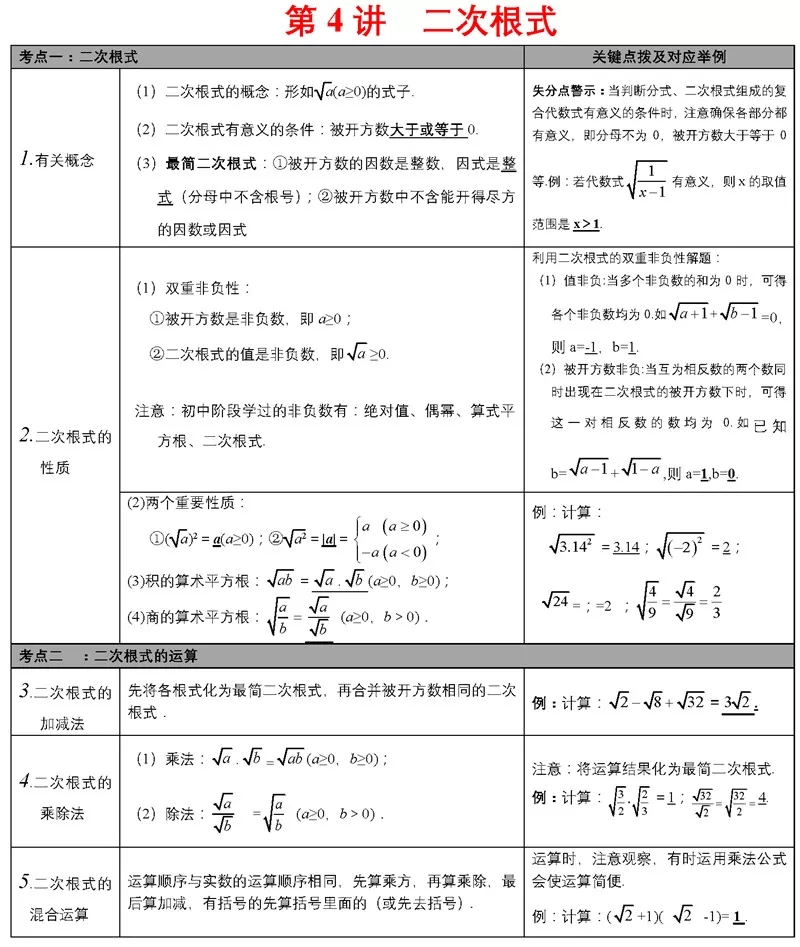 第 4 讲 二次根式
考点一：二次根式
关键点拨及对应举例
1.有关概念
（1）二次根式的概念：形如√a(a≥0)的式子.
（2）二次根式有意义的条件：被开方数大于或等于 0.
（3）最简二次根式：①被开方数的因数是整数，因式是整
式（分母中不含根号）；②被开方数中不含能开得尽方
的因数或因式
失分点警示：当判断分式、二次根式组成的复
合代数式有意义的条件时，注意确保各部分都
有意义，即分母不为 0，被开方数大于等于 0
等.例：若代数式 √(1/(x−1)) 有意义，则 x 的取值
范围是 x＞1.
2.二次根式的
性质
（1）双重非负性：
①被开方数是非负数，即 a≥0；
②二次根式的值是非负数，即√a ≥0.
注意：初中阶段学过的非负数有：绝对值、偶幂、算式平
方根、二次根式.
利用二次根式的双重非负性解题：
（1）值非负:当多个非负数的和为 0 时，可得
各个非负数均为 0.如√(a+1)+√(b−1)=0，
则 a=-1，b=1.
（2）被开方数非负:当互为相反数的两个数同
时出现在二次根式的被开方数下时，可得
这一对相反数的数均为 0.如已知
b=√(a−1)+√(1−a),则 a=1,b=0.
(2)两个重要性质：
①(√a)²＝a(a≥0)；②√a²＝|a|＝{a (a≥0) −a (a<0)；
(3)积的算术平方根：√ab＝√a·√b(a≥0，b≥0)；
(4)商的算术平方根：√(a/b)＝√a/√b (a≥0，b＞0)．
例：计算：
√3.14²＝3.14；√(−2)²＝2；
√24＝；=2 ；√(4/9)＝√4/√9＝2/3
考点二 ：二次根式的运算
3.二次根式的
加减法
先将各根式化为最简二次根式，再合并被开方数相同的二次
根式．
例：计算：√2−√8+√32＝3√2.
4.二次根式的
乘除法
（1）乘法：√a·√b=√ab(a≥0，b≥0)；
（2）除法：√a/√b =√(a/b) (a≥0，b＞0)．
注意：将运算结果化为最简二次根式.
例：计算：√(3/2)·√(2/3)＝1；√32/√2=√(32/2)=4.
5.二次根式的
混合运算
运算顺序与实数的运算顺序相同，先算乘方，再算乘除，最
后算加减，有括号的先算括号里面的（或先去括号）.
运算时，注意观察，有时运用乘法公式
会使运算简便.
例：计算：(√2+1)( √2 -1)= 1 .